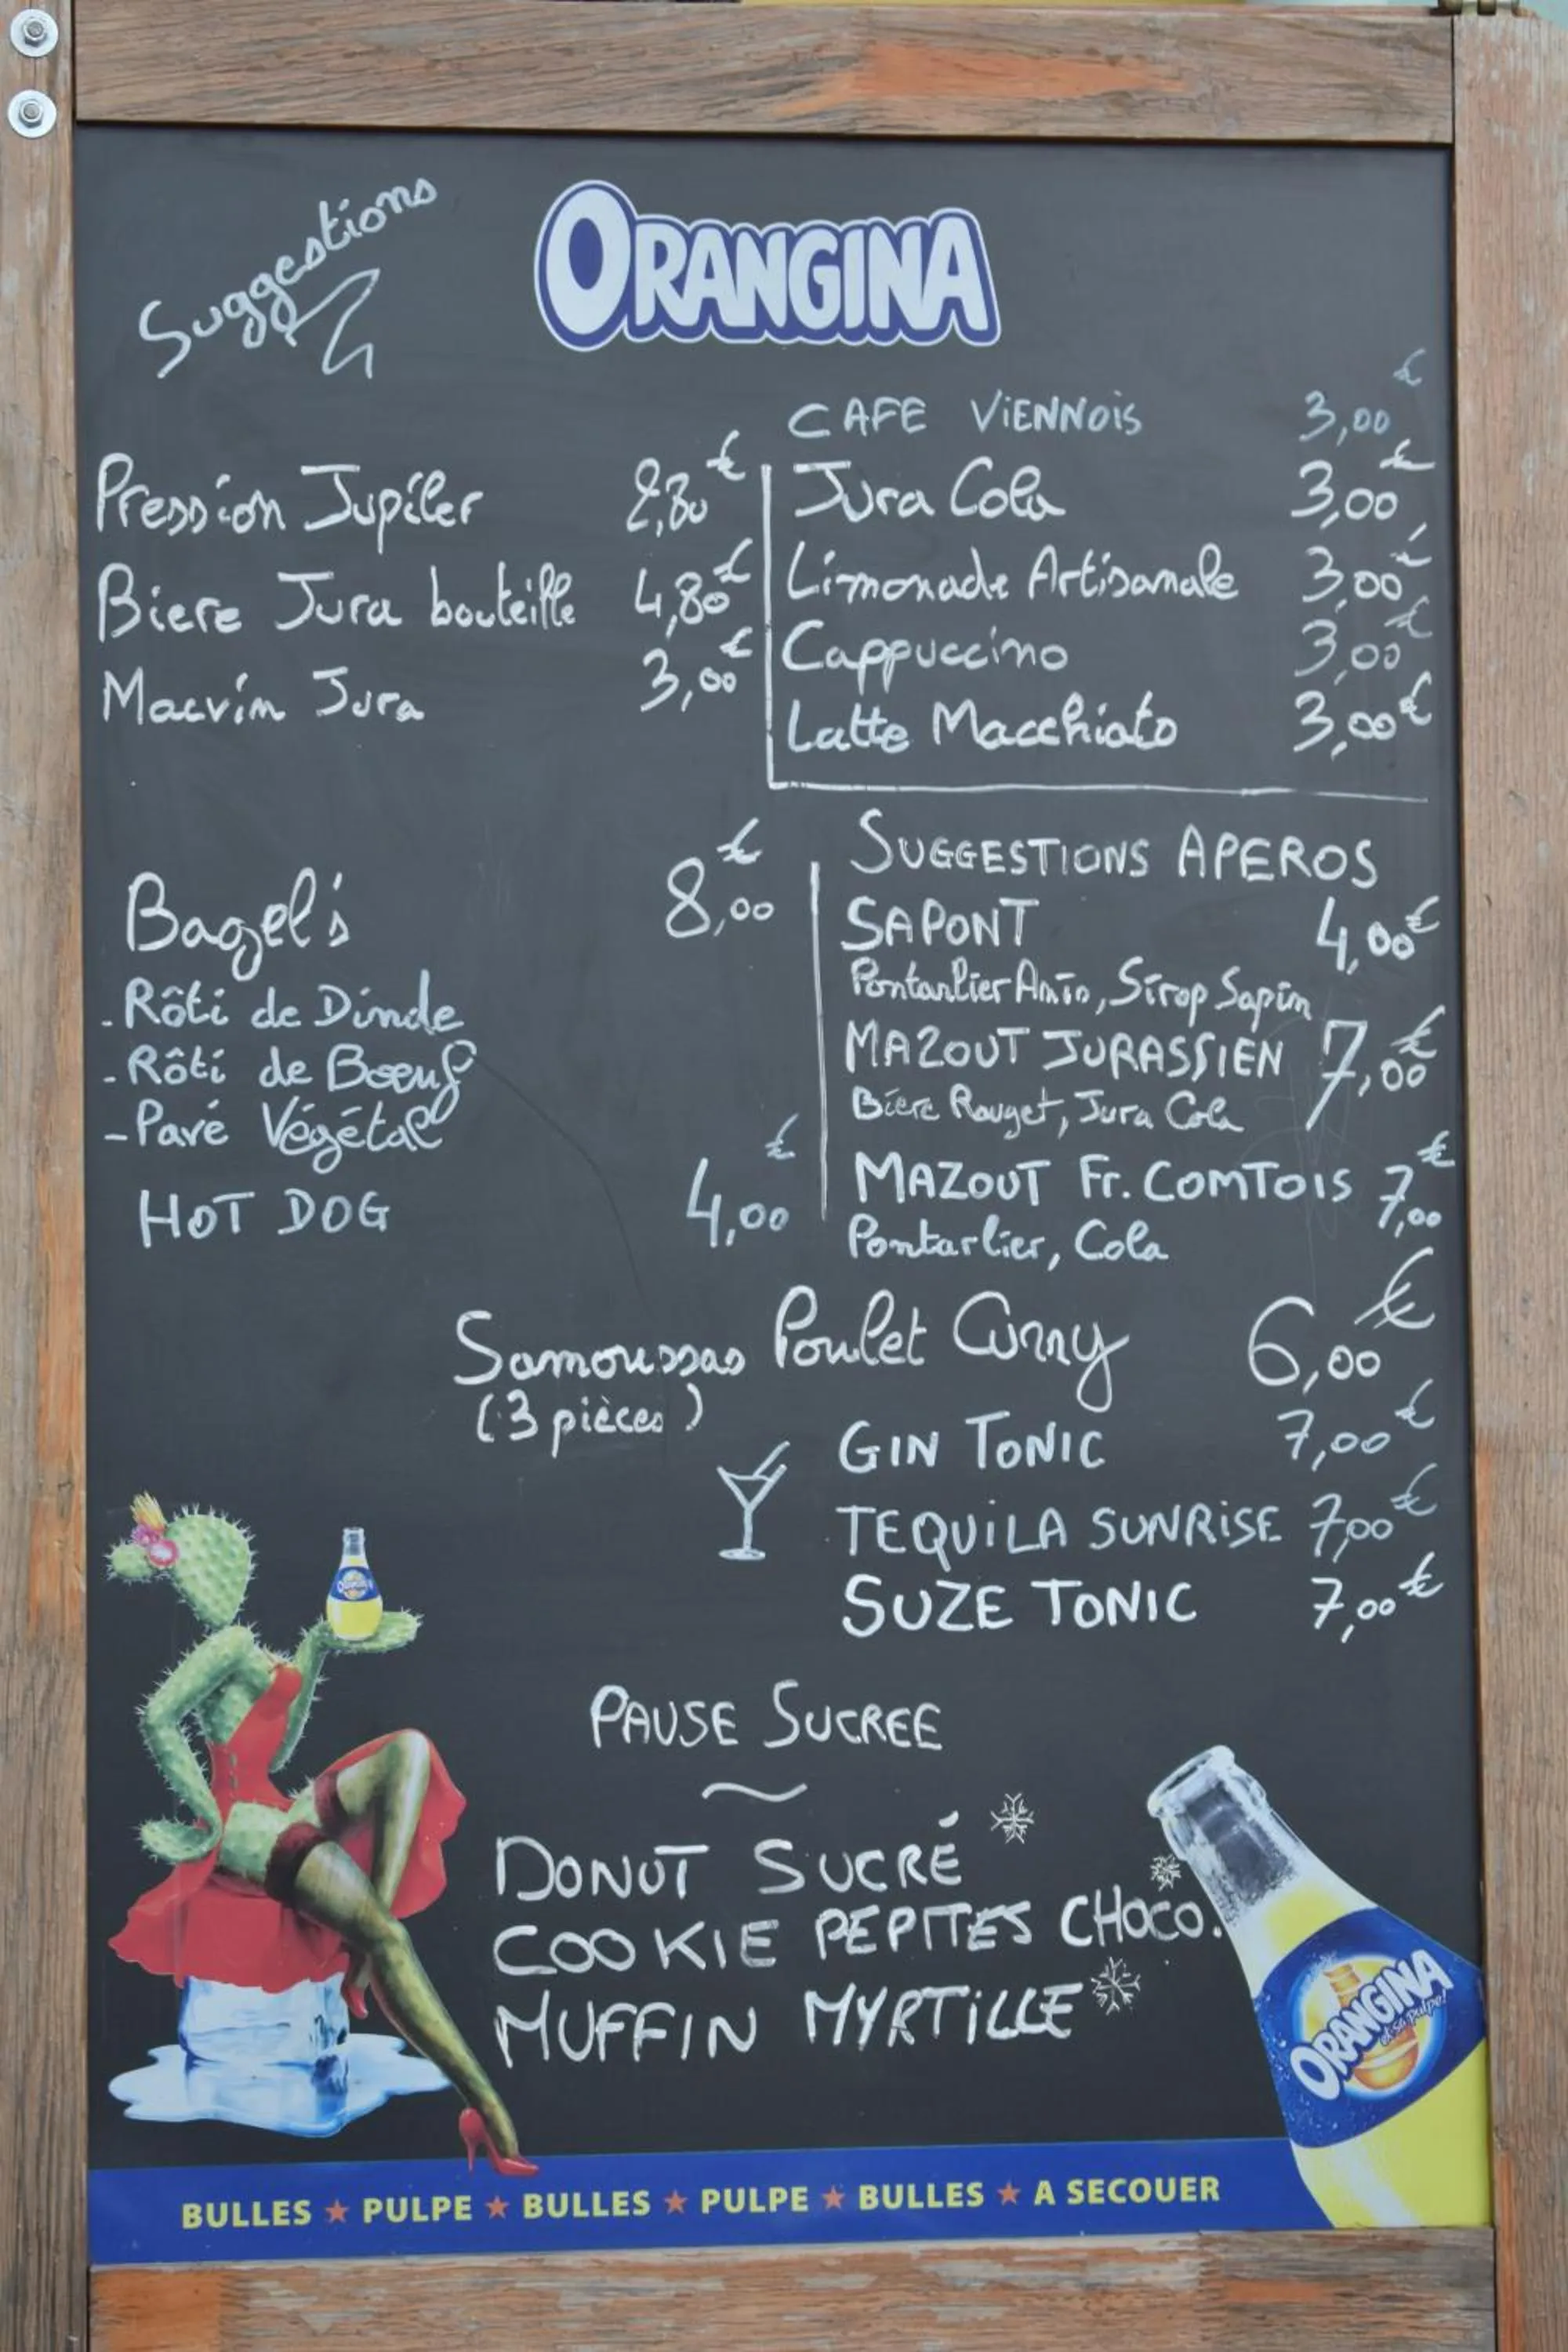 Suggestions
ORANGINA
CAFE VIENNOIS 3,00€
Pression Jupiler 2,80€
Biere Jura bouteille 4,80€
Macvin Jura 3,00€
Jura Cola 3,00€
Limonade Artisanale 3,00€
Cappuccino 3,00€
Latte Macchiato 3,00€
Bagel's 8,00€
- Rôti de Dinde
- Rôti de Boeuf
- Pavé Végétal
HOT DOG 4,00€
SUGGESTIONS APEROS
SAPONT 4,00€
Pontarlier Anis, Sirop Sapin
MAZOUT JURASSIEN 7,00€
Biere Rouget, Jura Cola
MAZOUT Fr. COMTOIS 7,00€
Pontarlier, Cola
Samoussas Poulet Curry 6,00€
(3 pièces)
GIN TONIC 7,00€
TEQUILA SUNRISE 7,00€
SUZE TONIC 7,00€
PAUSE SUCREE
~
DONUT SUCRÉ
COOKIE PEPITES CHOCO.
MUFFIN MYRTILLE
ORANGINA
et sa pulpe!
BULLES ★ PULPE ★ BULLES ★ PULPE ★ BULLES ★ A SECOUER